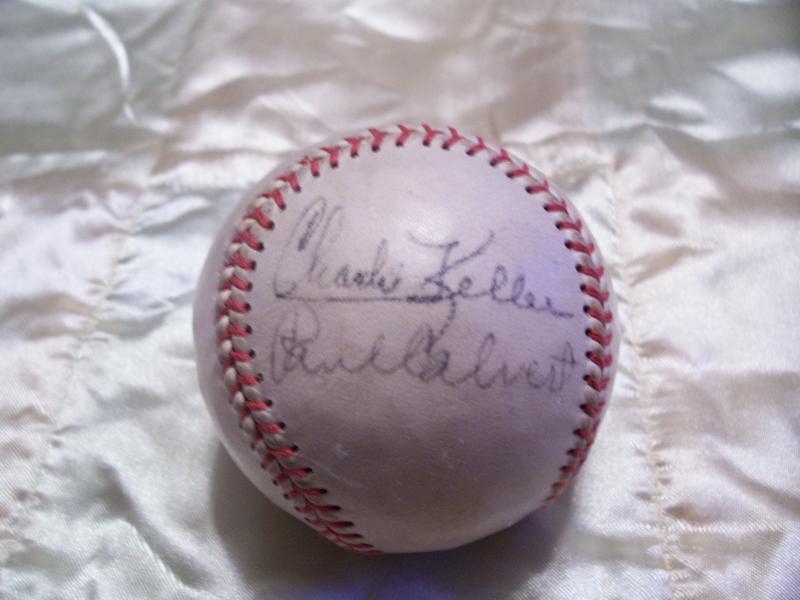 Charlie Keller
Paul Calvert